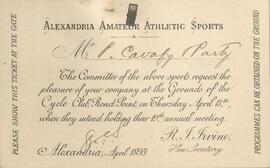 ALEXANDRIA AMATEUR ATHLETIC SPORTS
Mr P. Cavafy & Party
The Committee of the above sports request the
pleasure of your company at the Grounds of the
Cycle Club, Rond Point, on Thursday April 13th,
when they intend holding their 15th annual meeting.
R. J. Irvine,
Alexandria, April 1893
Hon. Secretary.
PLEASE SHOW THIS TICKET AT THE GATE
PROGRAMMES CAN BE OBTAINED ON THE GROUND